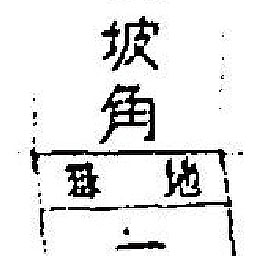 坡
角
番 地
一